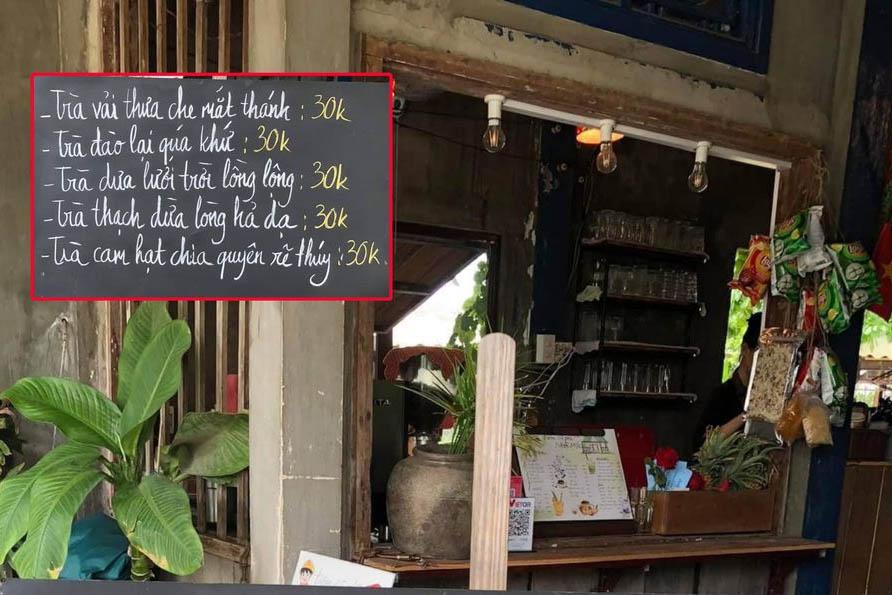 - Trà vải thưa che mắt thánh : 30k
- Trà đào lại quá khứ : 30k
- Trà dưa lưới trời lồng lộng : 30k
- Trà thạch dừa lòng hả dạ : 30k
- Trà cam hạt chia quyên rẽ thúy : 30k